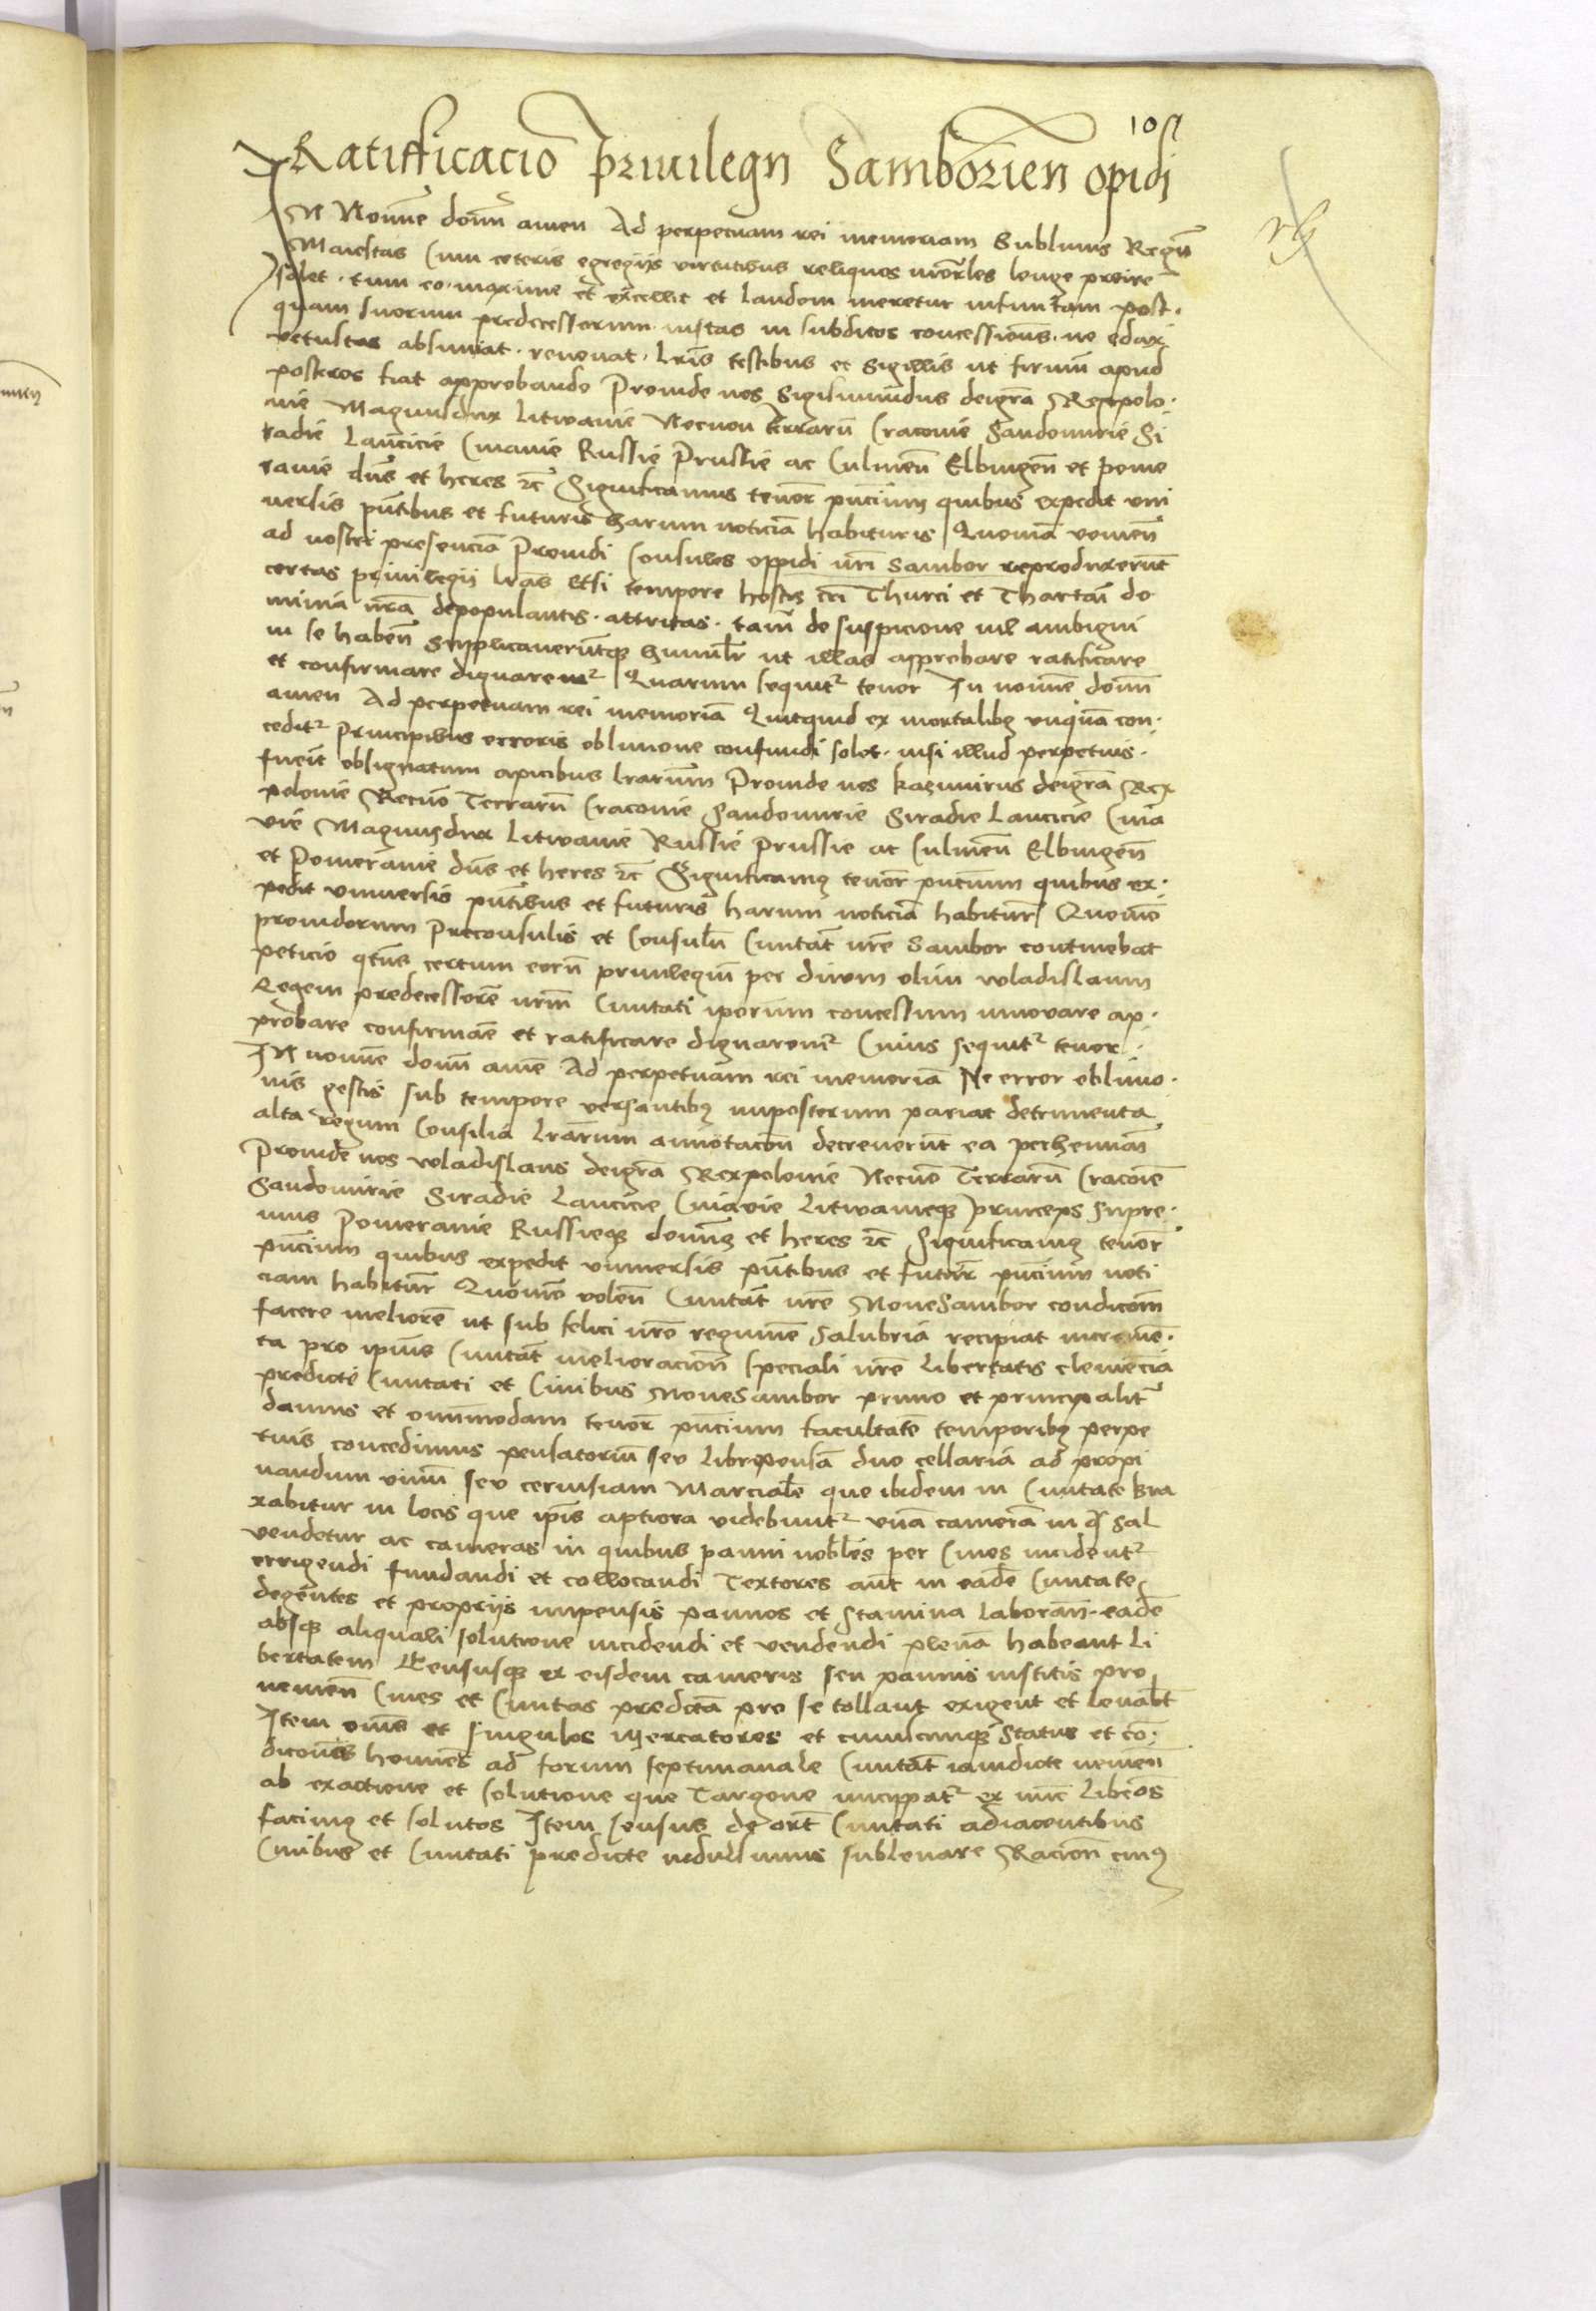 109
Ratifficacio Privilegii Samborien opidi
IN Nomine domini amen Ad perpetuam rei memoriam Sublimis Regum
Maiestas Cum ceteris egregiis virtutibus reliquos mortales longe preire
solet. tum eo. maxime et excellit et laudem meretur infinitam post.
quam suorum predecessorum. iustas in subditos concessiones. ne edax
vetustas absumat. renovat. lris testibus et sigillis ut firmum apud
posteros fiat approbando Proinde nos Sigismundus dei gra Rex polo.
nie Magnusdux Litwanie Necnon terrarum Cracovie Sandomirie Si
radie Lancicie Cuiavie Russie Prussie ac Culmen Elbingen et pome
ranie dns et heres zc Significamus tenor pncium quibus expedit uni
versis pntibus et futuris harum noticia habituris Quoniam venien
ad nostri presencia Providi Consules oppidi nri Sambor reproduxerunt
certas privilegii lras Etsi tempore hostis Thurci et Thartari do
minia nra depopulantis. attritas. tam de suspicione nil ambigui
in se haben Supplicaveruntque humilr ut illas approbare ratificare
et confirmare dignaremur Quarum sequitur tenor In nomine domini
amen Ad perpetuam rei memoria Quitquid ex mortalibus unquam con.
ceditur principibus erroris oblivione confundi solet. nisi illud perpetuis.
fuerit obsignatum apicibus lrarum Proinde nos Kazimirus dei gra Rex
polonie Necno Terrarum Cracovie Sandomirie Siradie Lancicie Cuia
vie Magnusdux Litwanie Russie Prussie ac Culmen Elbingen
et Pomeranie dns et heres zc Significamus tenor pncium quibus ex.
pedit universis pntibus et futuris harum noticia habitur Quomo
providorum Preconsulis et Consulu Civitat nre Sambor continebat
peticio qtus certum eorum privilegium per divum olim wladislaum
Regem predecessore nrm Civitati iporum concessum innovare ap.
probare confirmare et ratificare dignaremur Cuius sequitur tenor.
IN nomine domini amen Ad perpetuam rei memoria Ne error oblivio.
nis gestis sub tempore versantibus imposterum pariat detrimenta
alta regum Consilia lrarum annotacon decreverunt ea perhennari
Proinde nos wladislaus dei gra Rex polonie Necno Terrarum Cracovie
Sandomirie Siradie Lancicie Cuiavie Litwanieque princeps supre.
mus Pomeranie Russieque dominus et heres zc Significamus tenor
pncium quibus expedit universis pntibus et futur pncium noti
ciam habitur Quomo volen Civitat nre Nove Sambor condicom
facere meliorem ut sub felici nro regimine salubria recipiat increme.
ta pro ipius Civitat melioracion speciali nre libertatis clemencia
predicte Civitati et Civibus Nove Sambor primo et principalitr
damus et omnimodam tenor pncium facultate temporibus perpe
tuis concedimus pensatorium seu librepensa duo cellaria ad propi
nandum vinum seu cervisiam Marciale que ibidem in Civitate bra
xabitur in locis que ipis aptiora videbuntur una camera in qua Sal
vendetur ac cameras in quibus panni nobiles per Cives incidentur
errigendi fundandi et collocandi Textores aut in eade Civitate
degentes et propriis impensis pannos et stamina laboran. eade
absque aliquali solutione incidendi et vendendi plena habeant li
bertatem Censusque ex eisdem cameris seu pannis institis pro
venien Cives et Civitas predicta pro se tollant exigent et levabt
Item omes et singulos mercatores et cuiuscunque status et co.
diconis homines ad forum septimanale Civitat iamdicte venien
ab exactione et solutione que Targove nucupatur ex nunc liberos
facimus et solutos Item Census de ort Civitati adiacentibus
Civibus et Civitati predicte sublevare Racion cuius